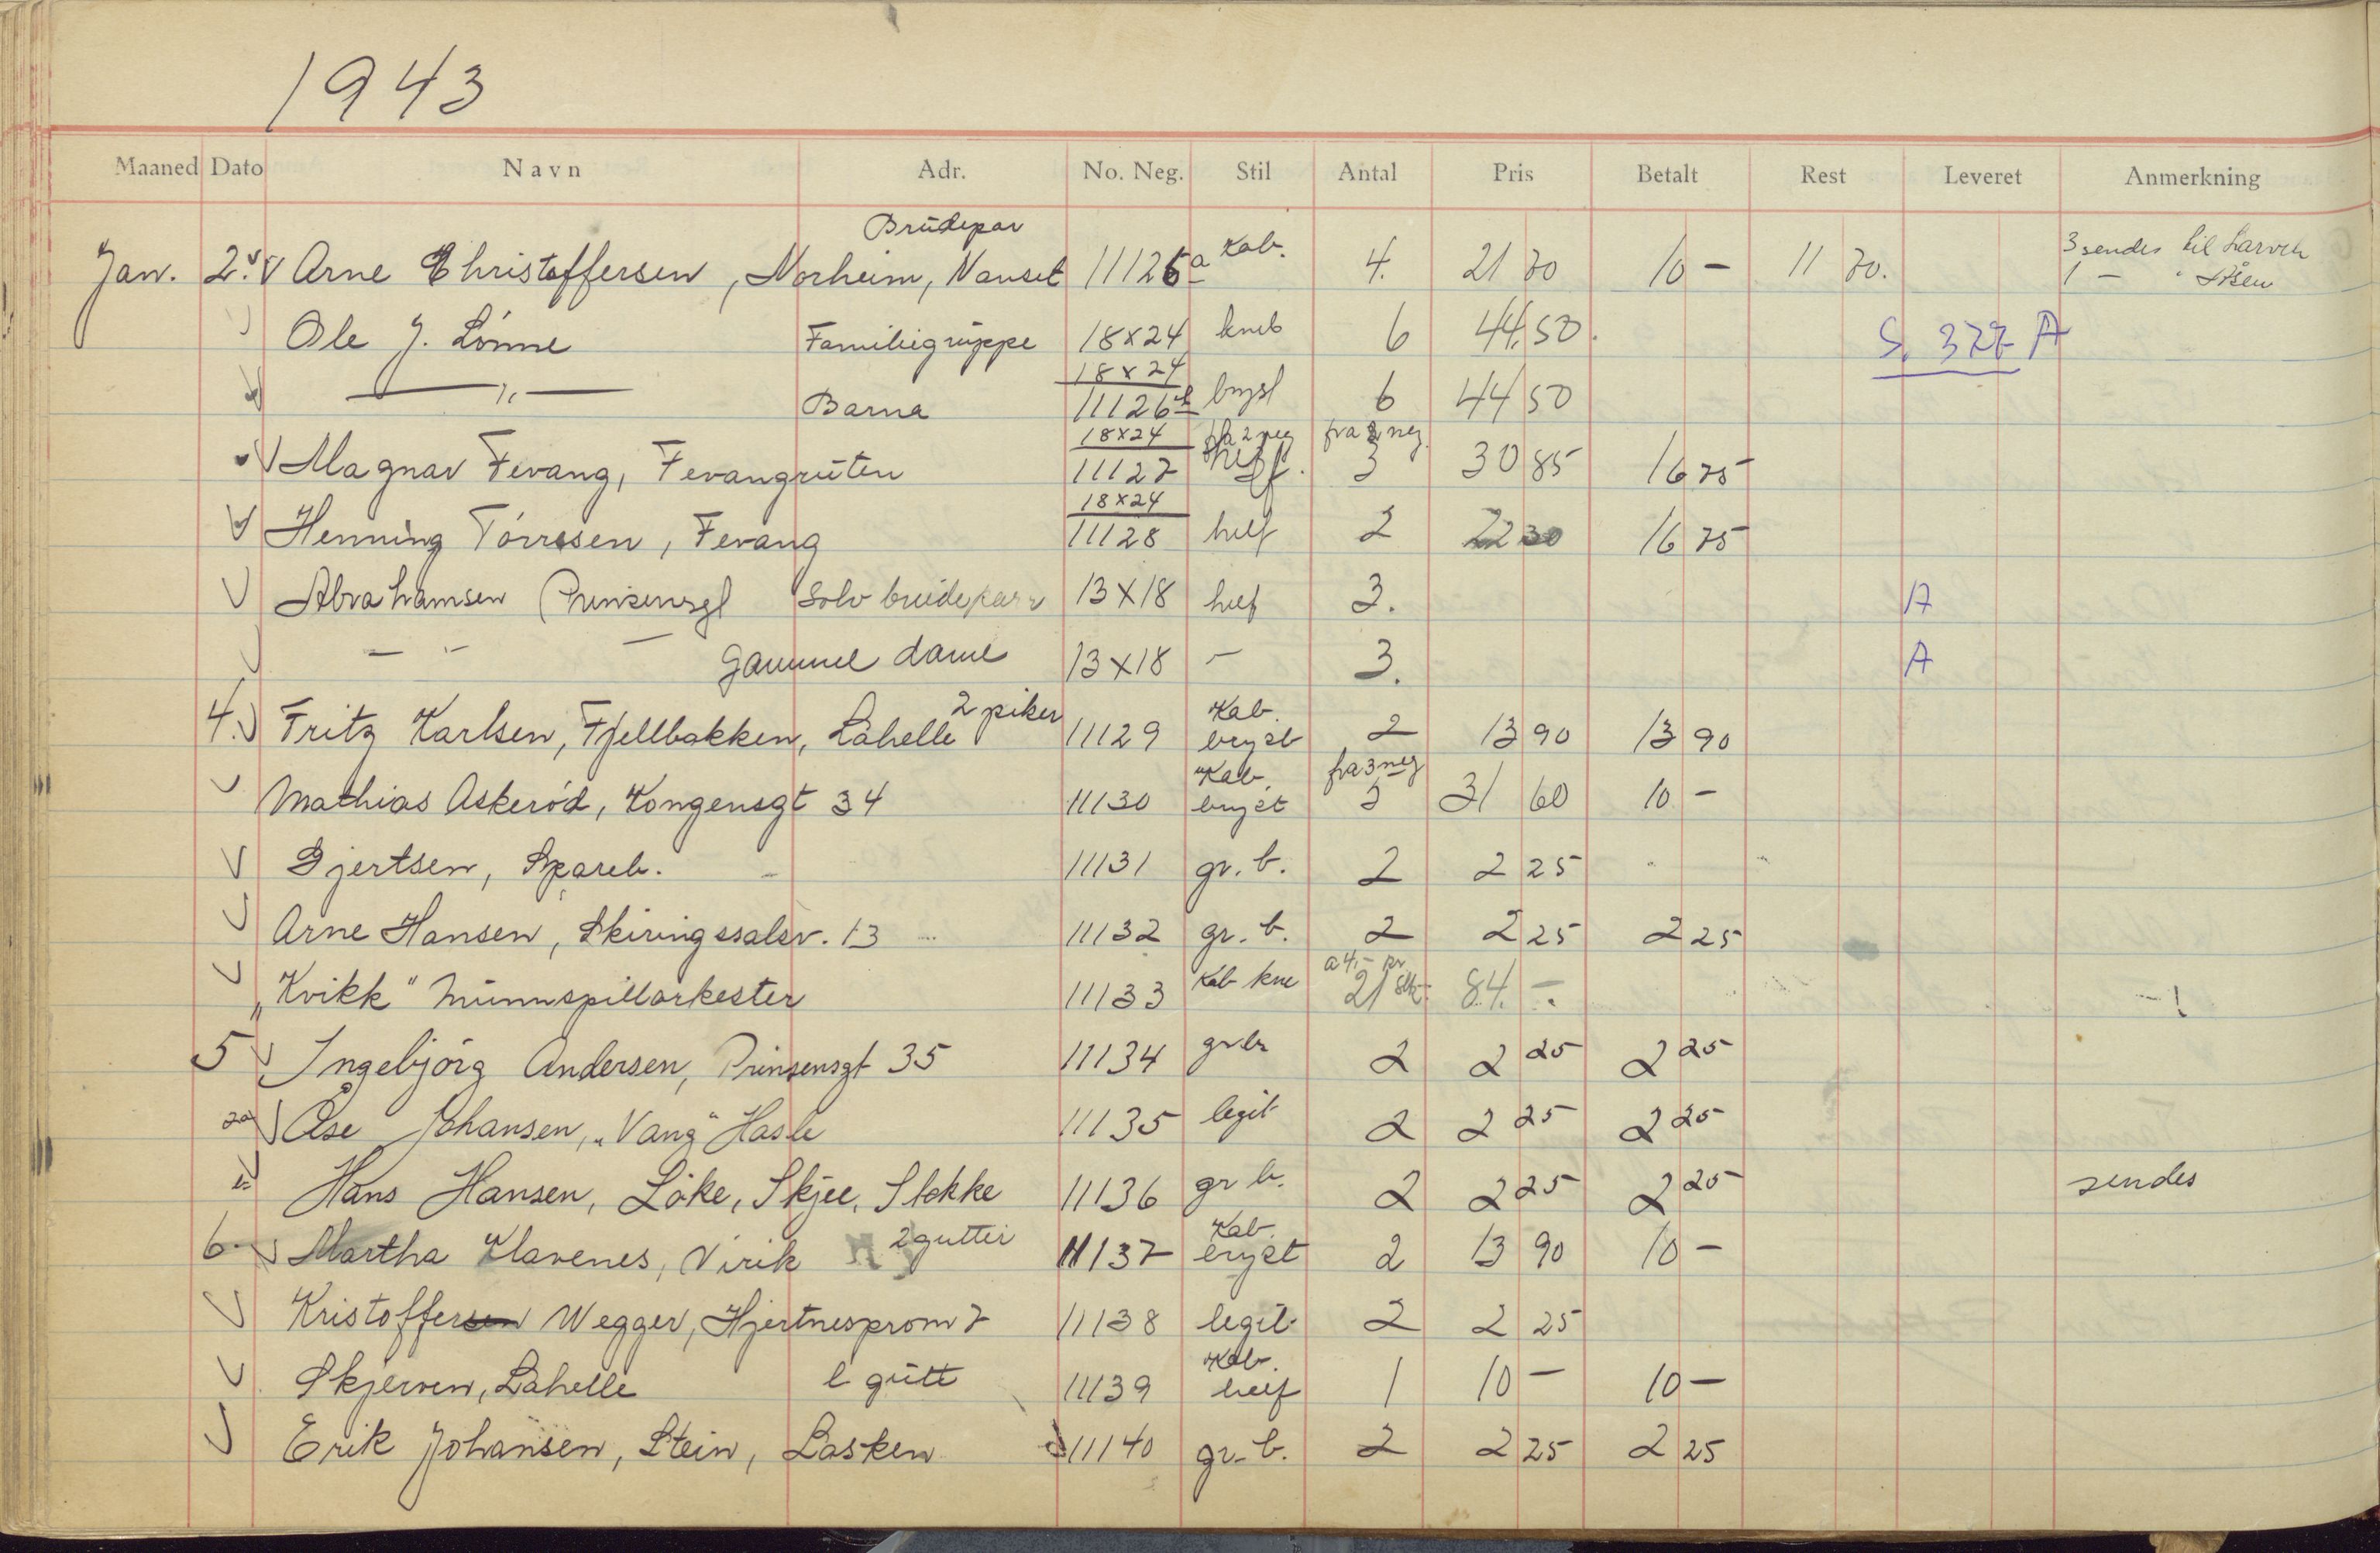 1943
Maaned Dato Navn Adr. No. Neg. Stil Antal Pris Betalt Rest Leveret Anmerkning
Brüdepar
Jan. 2. Arne Christoffersen, Norheim, Nanset 11126a Kab. 4. 21 70 10 – 11 70. 3 sendes til Larvik
1 – " Åsen
Ole J. Lönne Familiegrüppe 18x24 kneb 6 44,50. S. 327 A
— " — Barna 18x24 11126b bryst 6 44 50
Magnar Fevang, Fevangrüten 18x24 11127 fra 2 neg helf. fra 2 neg. 3 30 85 16 75
Henning Törresen, Fevang 18x24 11128 helf 2 22 30 16 75
Abrahamsen Prinsensgt Sölv brüdepar 13x18 helf 3. A
— " — Gammel dame 13x18 – 3. A
4. Fritz Karlsen, Fjellbakken, Lahelle 2 piker 11129 Kab. bryst 2 13 90 13 90
Mathias Askeröd, Kongensgt 34 11130 Kab. bryst fra 3 neg 3 31 60 10 –
Gjertsen, Spareb. 11131 gr. b. 2 2 25
Arne Hansen, Skiringssalsv. 13 11132 gr. b. 2 2 25 2 25
"Kvikk" Münnspillorkester 11133 Kab kne a 4,– kr 21 stk 84. –.
5 Ingebjörg Andersen, Prinsensgt 35 11134 gr b 2 2 25 2 25
Åse Johansen, "Vang" Hasle 11135 legit 2 2 25 2 25
Hans Hansen, Löke, Skjee, Stokke 11136 gr b. 2 2 25 2 25 sendes
6. Martha Klavenes, Virik 2 gutter 11137 Kab. bryst 2 13 90 10 –
Kristoffersen Wegger, Hjertnesprom 7 11138 legit 2 2 25
Skjerven, Lahelle 1 gütt 11139 Kab. helf 1 10 – 10 –
Erik Johansen, Stein, Lasken 11140 gr. b. 2 2 25 2 25